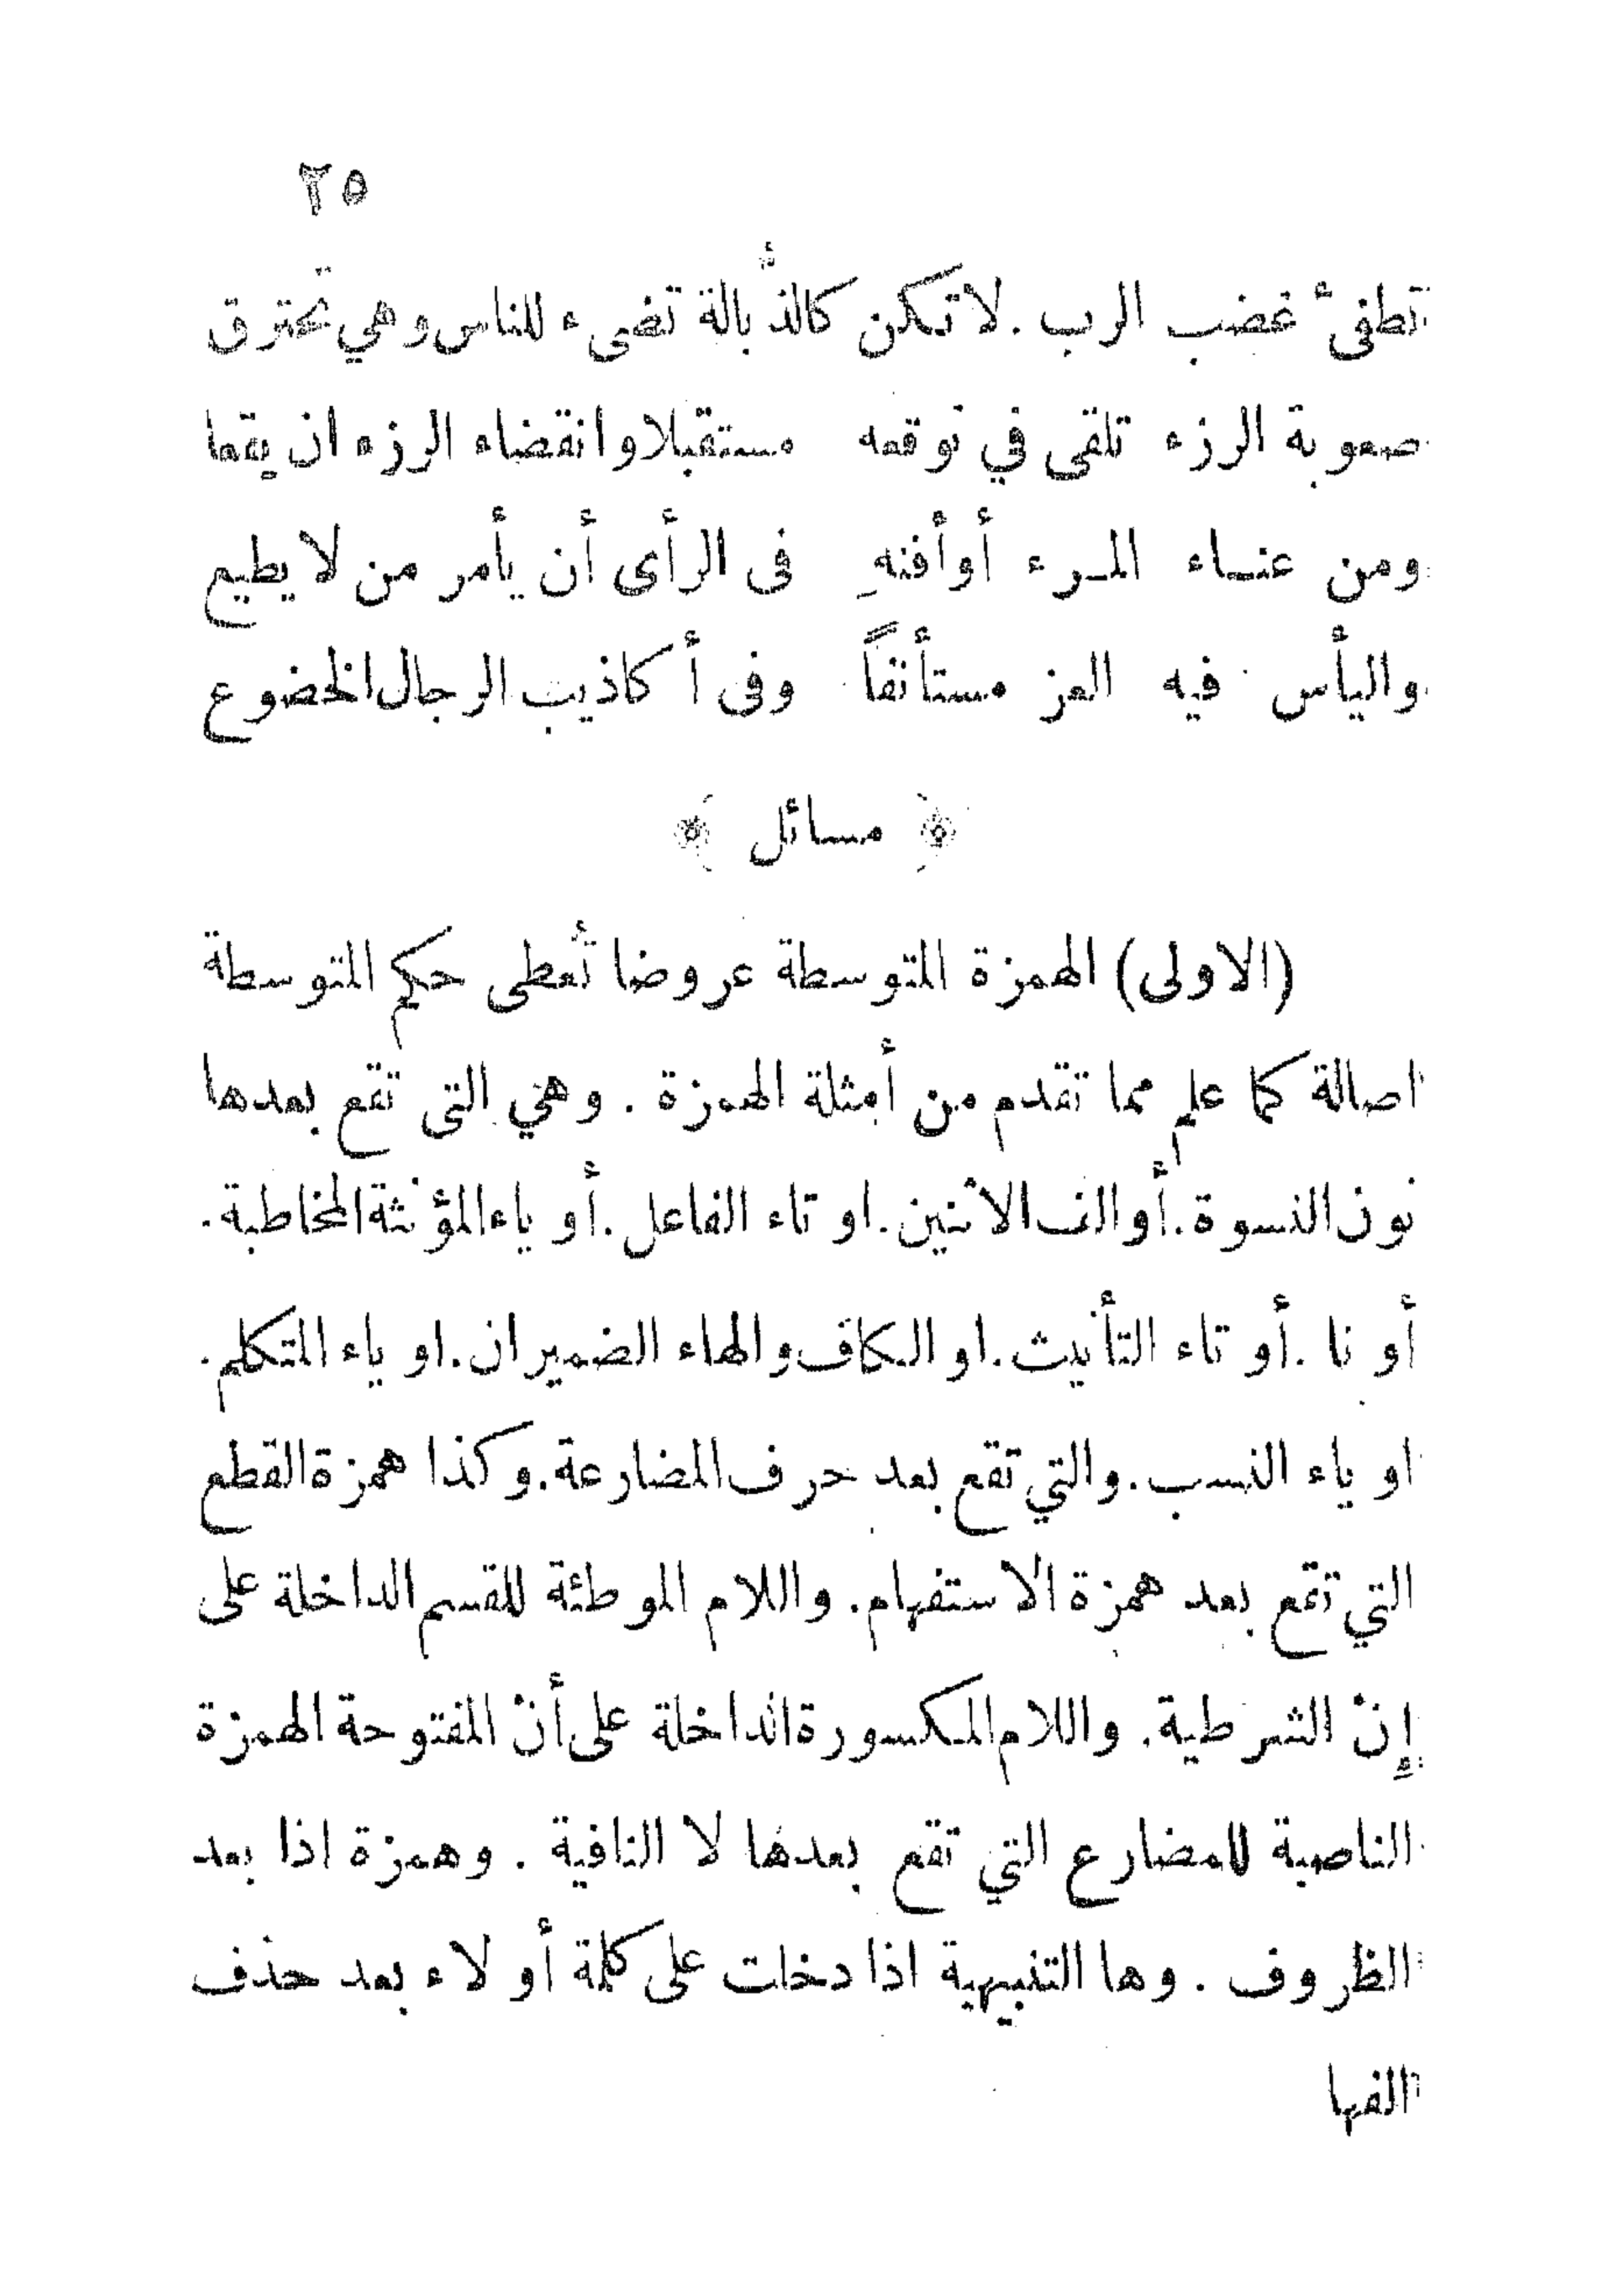 ٢٥
تطفئ غضب الرب . لا تكن كالذُّبالة تضىء للناس وهي تحترق
صعوبة الرزء تلقى في توقعه مستقبلا وانقضاء الرزء ان يقعا
ومن عنـاء المـرء أو أفنهِ فى الرأى أن يأمر من لا يطيع
واليأس فيه العز مستأنفاً وفى أكاذيب الرجال الخضوع
﴿ مسائل ﴾
(الاولى) الهمزة المتوسطة عروضا تُعطى حكم المتوسطة
اصالة كما علم مما تقدم من أمثلة الهمزة . وهي التى تقع بعدها
نون النسوة . أو الف الاثنين . او تاء الفاعل . أو ياء المؤنثة المخاطبة .
أو نا . أو تاء التأنيث . او الكاف والهاء الضميران . او ياء المتكلم .
او ياء النسب . والتي تقع بعد حرف المضارعة . وكذا همزة القطع
التي تقع بعد همزة الاستفهام . واللام الموطئة للقسم الداخلة على
إنْ الشرطية . واللام المكسورة الداخلة على أنْ المفتوحة الهمزة
الناصبة للمضارع التي تقع بعدها لا النافية . وهمزة اذا بعد
الظروف . وها التنبيهية اذا دخلت على كلمة أولاء بعد حذف
الفها